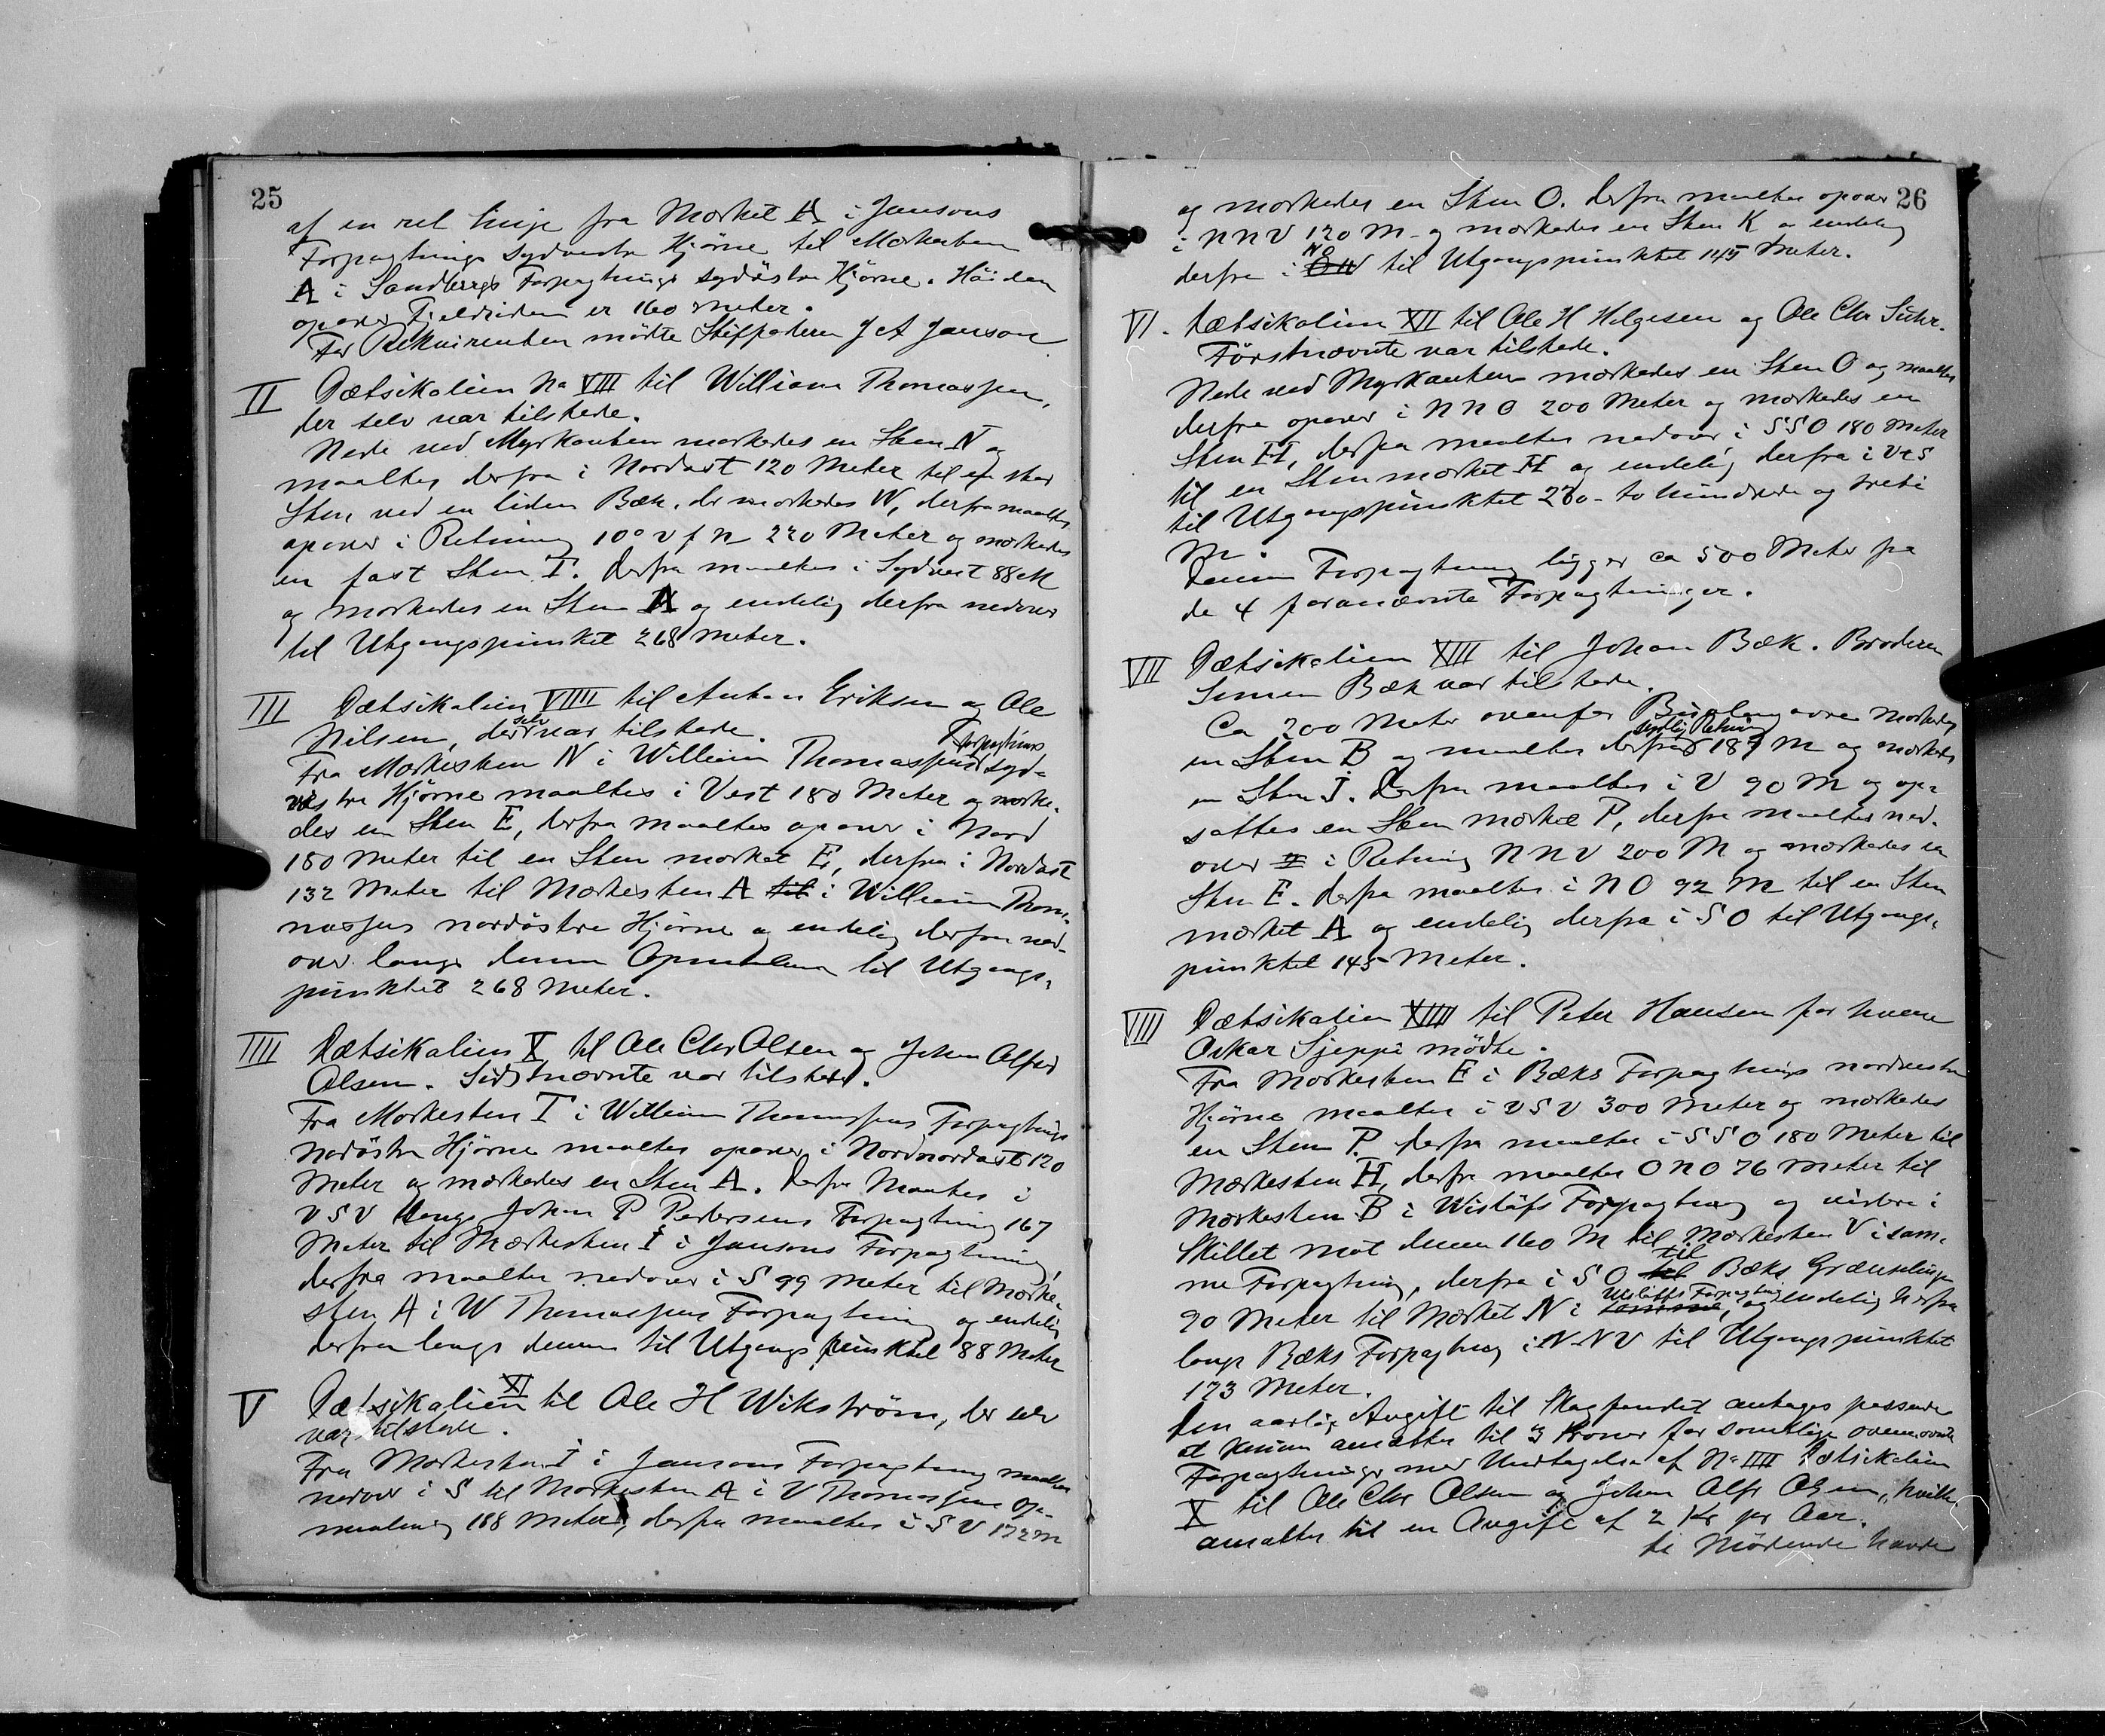 25
af en ret Linje fra Mærket A i Jansons
Forpagtnings sydvestre Hjørne til Mærkesten
A i Sandbergs Forpagtnings sydöstre Hjørne. Höiden
opover Fjeldsiden er 160 Meter.
For Rekvirenten mödte Skipperen J A Janson
II Dætsikalien No VIII til William Thomassen,
der selv var tilstede.
Nede ved Myrkanten mærkedes en Sten N og
maaltes derfra i Nordost 120 Meter til en stor
Sten ved en liden Bæk, der mærkedes W, derfra maaltes
opover i Retning 10° V f N 220 Meter og mærkedes
en fast Sten T. Derfra maaltes i Sydvest 88 M
og mærkedes en Sten A og endelig derfra nedover
til Utgangspunktet 268 Meter.
III Dætsikalien VIIII til Anton Eriksen og Ole
Nilsen, der selv var tilstede.
Fra Mærkesten N i William Thomassens Forpagtnings syd-
vestre Hjørne maaltes i Vest 180 Meter og mærke-
des en Sten E, derfra maaltes opover i Nord
180 Meter til en Sten mærket E, derfra i Nordost
132 Meter til Mærkesten A til i William Thom-
massens nordöstre Hjørne og endelig derfra ned-
over langs denne Opmaaling til Utgangs-
punktet 268 Meter.
IIII Dætsikalien X til Ole Chr Olsen og Johan Alfred
Olsen. Sidstnævnte var tilstede.
Fra Mærkesten T i William Thomassens Forpagtnings
nordöstre Hjørne maaltes opover i Nordnordost 120
Meter og mærkedes en Sten A. Derfra maaltes i
V S V langs Johan P Pedersens Forpagtning 167
Meter til Mærkesten I i Jansons Forpagtning,
derfra maaltes nedover i S 99 Meter til Mærke-
sten A i W Thomassens Forpagtning og endelig
derfra langs denne til Utgangspunktet 88 Meter
V Dætsikalien XI til Ole H Wikström, der selv
var tilstede.
Fra Mærkesten I i Jansons Forpagtning maaltes
nedover i S til Mærkesten A i V Thomassens Op-
maaling 188 Meter, derfra maaltes i S V 172 M
26
og mærkedes en Sten O. Derfra maaltes opover
i N N V 120 M og mærkedes en Sten K og endelig
derfra i NO til Utgangspunktet 145 Meter.
VI. Dætsikalien XII til Ole H Helgesen og Ole Chr Suhr.
Förstnævnte var tilstede.
Nede ved Myrkanten mærkedes en Sten O og maaltes
derfra opover i N N O 200 Meter og mærkedes en
Sten H, derfra maaltes nedover i S S O 180 Meter
til en Sten mærket H og endelig derfra i V t S
til Utgangspunktet 230 - to hundrede og treti
M.
Denne Forpagtning ligger ca 500 Meter fra
de 4 forannævnte Forpagtninger.
VII Dætsikalien XIII til Johan Bæk. Broderen
Simon Bæk var tilstede.
Ca 200 Meter ovenfor mærkedes
en Sten B og maaltes derfra sydlig Retning 187 M og mærkedes
en Sten I. Derfra maaltes i V 90 M og op-
sattes en Sten mærket P, derfra maaltes ned-
over i Retning N N V 200 M og mærkedes en
Sten E. Derfra maaltes i N O 92 M til en Sten
mærket A og endelig derfra i S O til Utgangs-
punktet 145 Meter.
VIII Dætsikalien XIIII til Peter Hansen for hvem
Oskar Sjeppi mödte.
Fra Mærkesten E i Bæks Forpagtnings nordvestre
Hjørne maaltes i V S V 300 Meter og mærkedes
en Sten P. Derfra maaltes i S S O 180 Meter til
Mærkesten H, derfra maaltes O N O 76 Meter til
Mærkesten B i Wisløfs Forpagtning og videre i
Skillet mot denne 160 M til Mærkesten V i sam-
me Forpagtning, derfra i S O til Bæks Grænselinje
90 Meter til Mærket N i Wisløffs Forpagtning, og endelig derfra
langs Bæks Forpagtning i N N V til Utgangspunktet
173 Meter.
Den aarlige Avgift til Skogfondet antages passende
at kunne ansættes til 3 Kroner for samtlige ovennævnte
Forpagtninger med Undtagelse af No IIII Dætsikalien
X til Ole Chr Olsen og Johan Alfr Olsen, hvilken
ansattes til en Avgift af 2 Kr pr Aar.
De Mödende havde